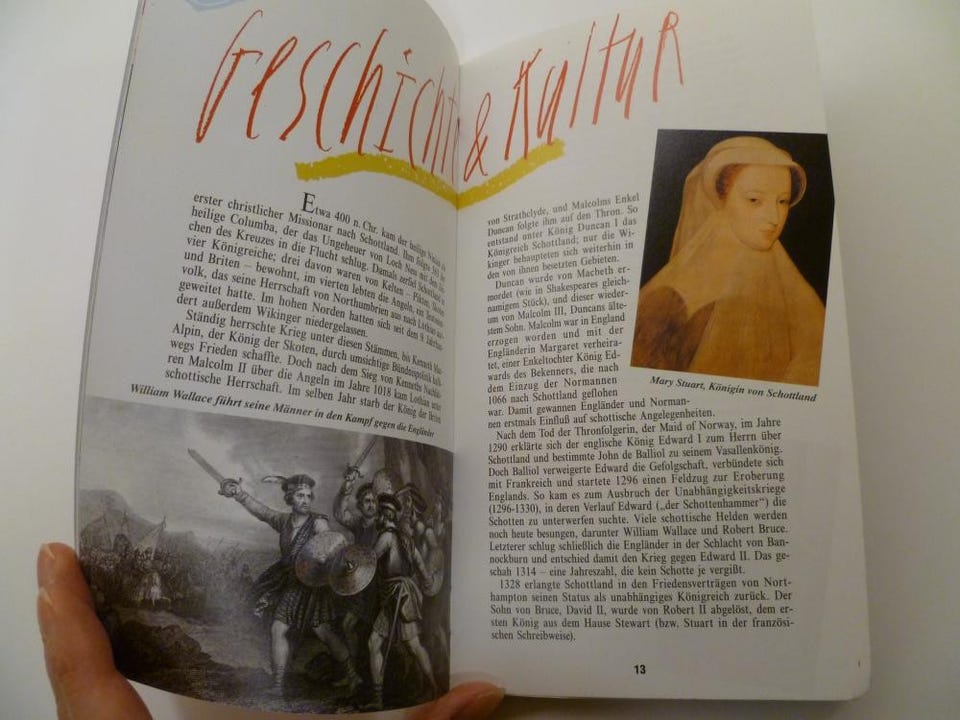 Geschicht & Kultur
Etwa 400 n. Chr. kam der heilige
erster christlicher Missionar nach Schottland. Ihm folgte 563 der
heilige Columba, der das Ungeheuer von Loch Ness mit dem
chen des Kreuzes in die Flucht schlug. Damals zerfiel Schottland in
vier Königreiche; drei davon waren von Kelten – Pikten, Skoten
und Briten – bewohnt, im vierten lebten die Angeln, ein
volk, das seine Herrschaft von Northumbrien aus nach Lothian
geweitet hatte. Im hohen Norden hatten sich seit dem 9. Jahrhun-
dert außerdem Wikinger niedergelassen.
Ständig herrschte Krieg unter diesen Stämmen, bis Kenneth Mac-
Alpin, der König der Skoten, durch umsichtige Bündnispolitik
wegs Frieden schaffte. Doch nach dem Sieg von Kenneths
ren Malcolm II über die Angeln im Jahre 1018 kam Lothian unter
schottische Herrschaft. Im selben Jahr starb der König der Briten
William Wallace führt seine Männer in den Kampf gegen die Engländer
von Strathclyde, und Malcolms Enkel
Duncan folgte ihm auf den Thron. So
entstand unter König Duncan I das
Königreich Schottland; nur die Wi-
kinger behaupteten sich weiterhin in
den von ihnen besetzten Gebieten.
Duncan wurde von Macbeth er-
mordet (wie in Shakespeares gleich-
namigem Stück), und dieser wieder-
um von Malcolm III, Duncans älte-
stem Sohn. Malcolm war in England
erzogen worden und mit der
Engländerin Margaret verheira-
tet, einer Enkeltochter König Ed-
wards des Bekenners, die nach
dem Einzug der Normannen
1066 nach Schottland geflohen
war. Damit gewannen Engländer und Norman-
nen erstmals Einfluß auf schottische Angelegenheiten.
Mary Stuart, Königin von Schottland
Nach dem Tod der Thronfolgerin, der Maid of Norway, im Jahre
1290 erklärte sich der englische König Edward I zum Herrn über
Schottland und bestimmte John de Balliol zu seinem Vasallenkönig.
Doch Balliol verweigerte Edward die Gefolgschaft, verbündete sich
mit Frankreich und startete 1296 einen Feldzug zur Eroberung
Englands. So kam es zum Ausbruch der Unabhängigkeitskriege
(1296-1330), in deren Verlauf Edward („der Schottenhammer“) die
Schotten zu unterwerfen suchte. Viele schottische Helden werden
noch heute besungen, darunter William Wallace und Robert Bruce.
Letzterer schlug schließlich die Engländer in der Schlacht von Ban-
nockburn und entschied damit den Krieg gegen Edward II. Das ge-
schah 1314 – eine Jahreszahl, die kein Schotte je vergißt.
1328 erlangte Schottland in den Friedensverträgen von Nort-
hampton seinen Status als unabhängiges Königreich zurück. Der
Sohn von Bruce, David II, wurde von Robert II abgelöst, dem er-
sten König aus dem Hause Stewart (bzw. Stuart in der französi-
schen Schreibweise).
13